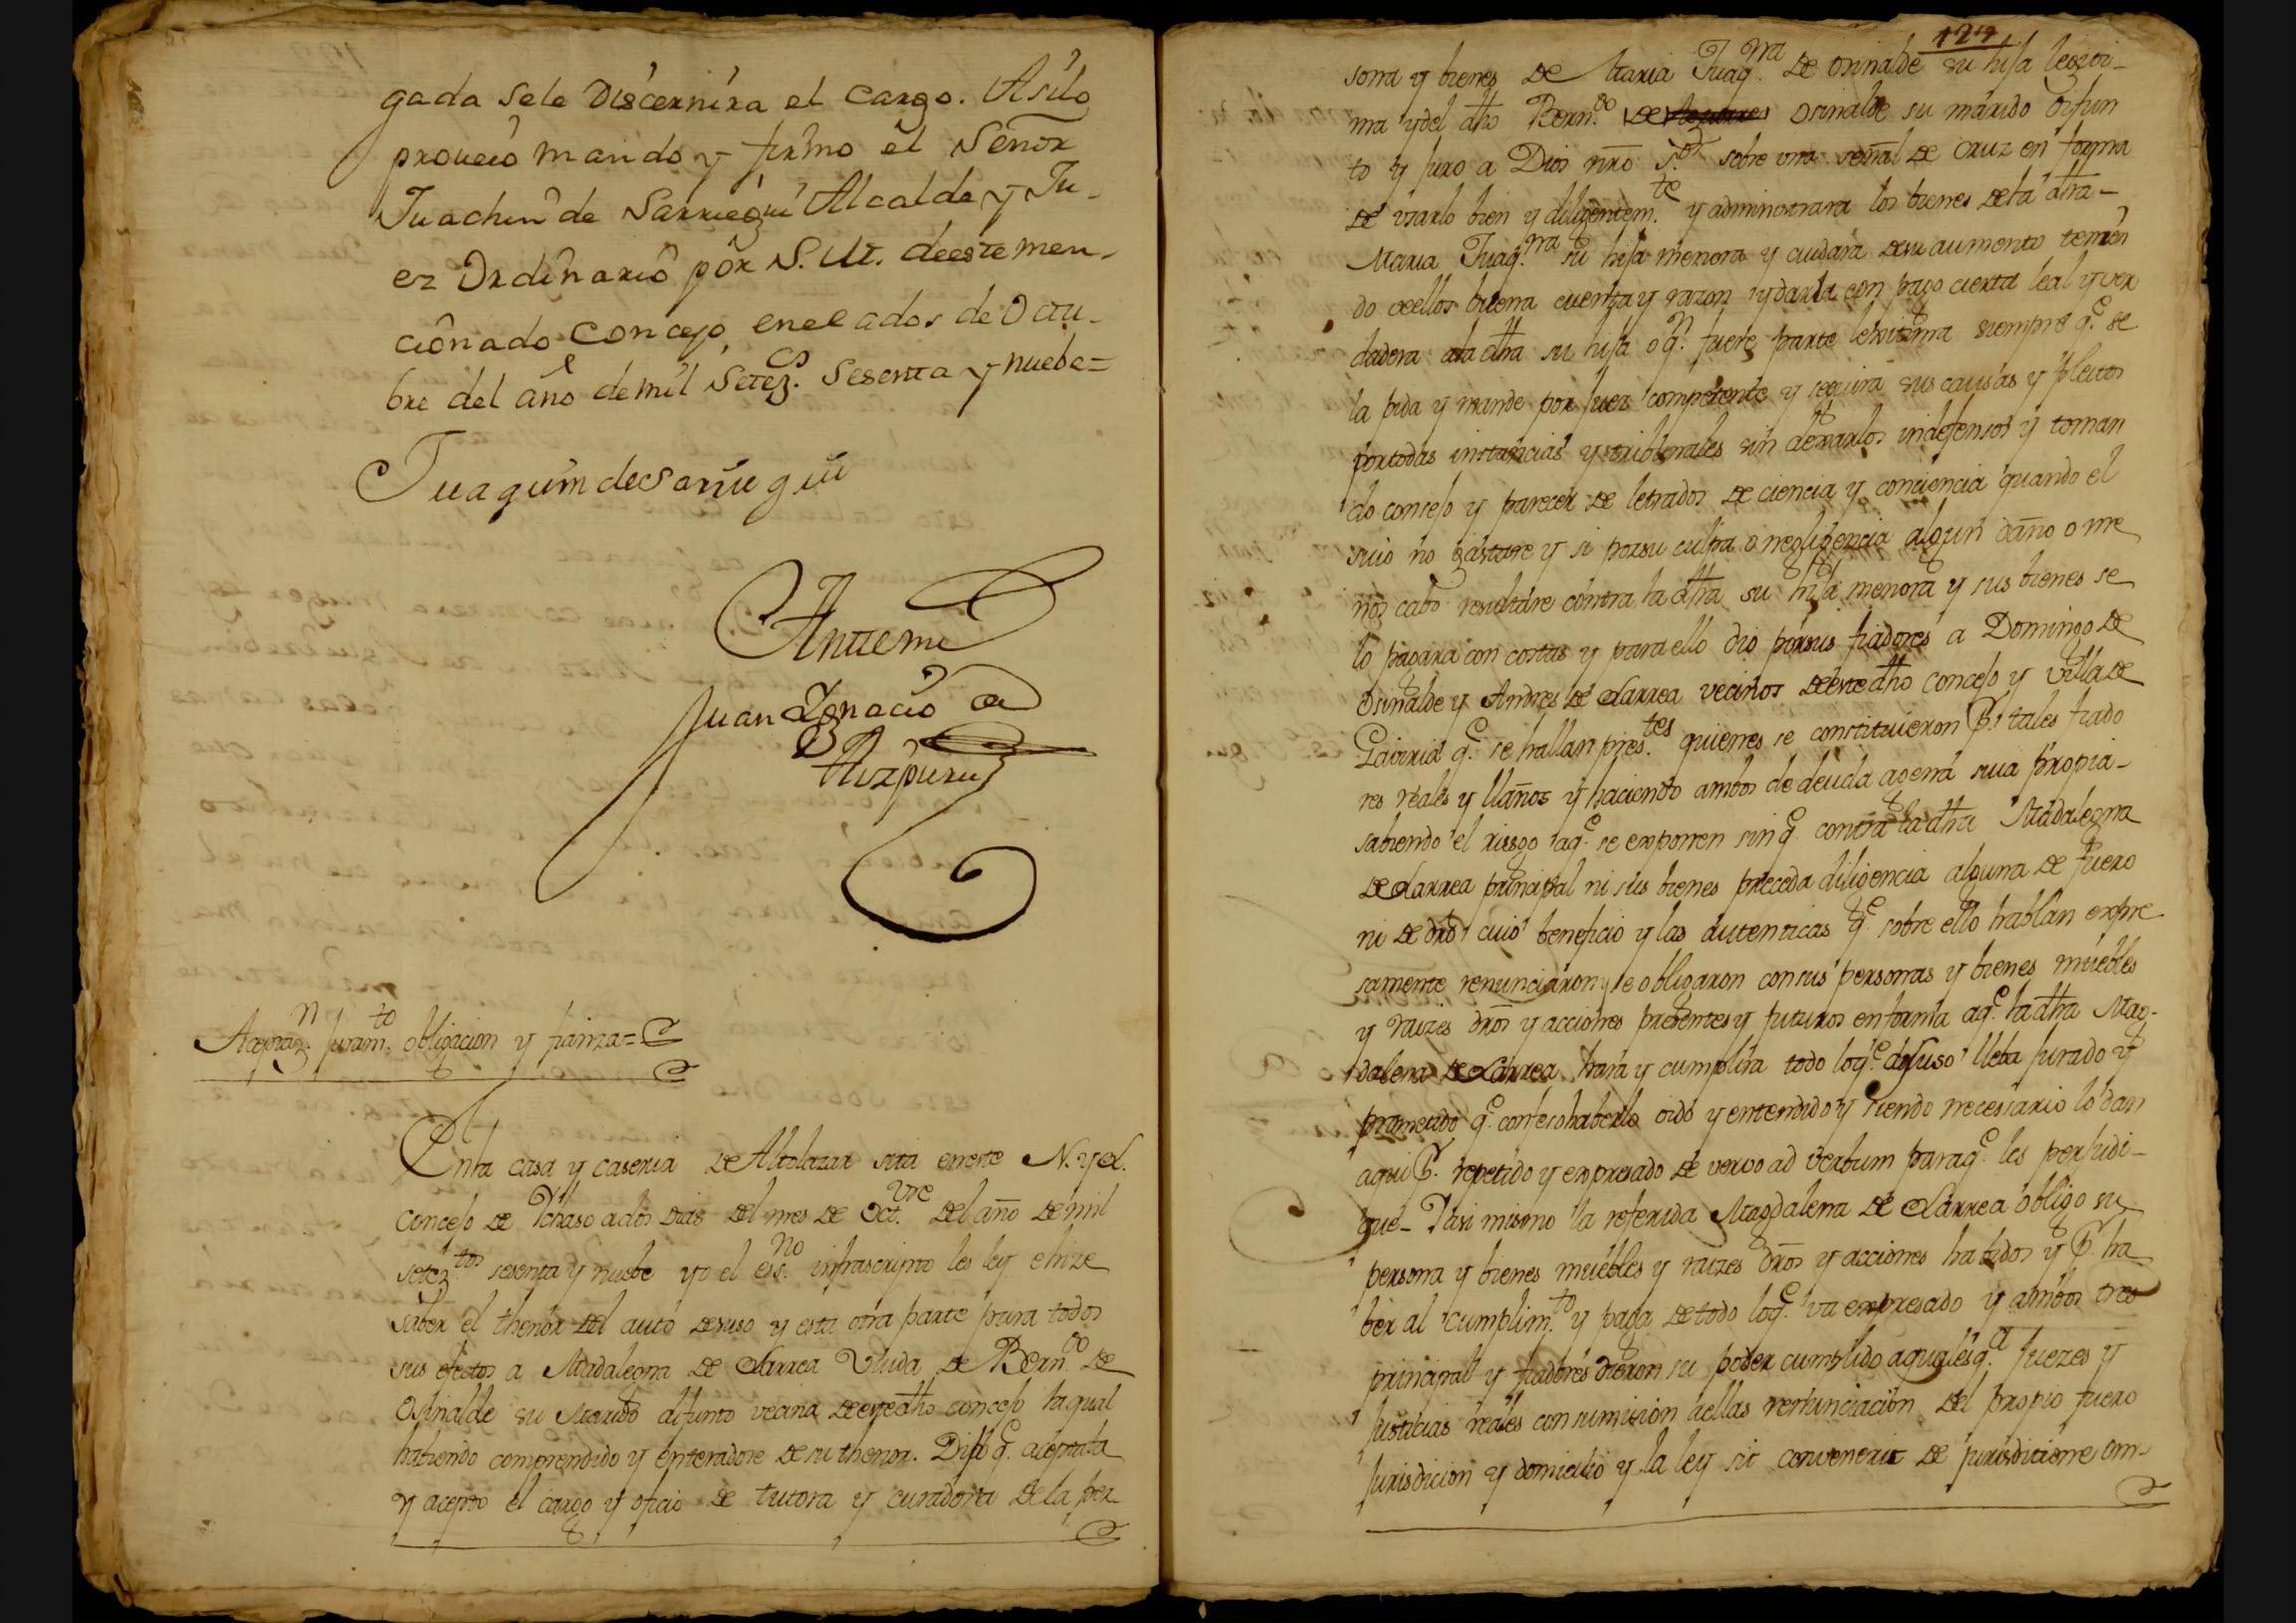 gada sele Discernira el cargo. Asilo
proueio mando y firmo el Señor
Juachin de Sarriegui Alcalde y Ju-
ez Ordinario por S. M. deeste men-
cionado Concejo, enel ados de Octu-
bre del año demil Setez.os Sesenta y nuebe=
Juaquin de Sarriegui
Antemi
Juan Ignacio de
Aizpuru
Aceptaz.n Juram.to obligacion y fianza=
Enla casa y caseria de Altolazar sita eneste N. y L.
Concejo de Ichaso ados dias del mes de Oct.vre del año de mil
setez.tos sesenta y nuebe yo el ess.no infrascripto les ley e hize
saber el thenor del auto desuso y esta otra parte para todos
sus efectos a Madalegna de Larrea Viuda de Bern.do de
Osinalde su Marido difunto vecina deeste dho concejo laqual
habiendo comprendido y enteradose de su thenor. Dijo q.e aceptaba
y acepto el cargo y oficio de tutora y curadora de la per
127
sona y bienes de Maria Juaq.na de Osinalde su hija legiti-
ma y del dho Bern.do de Osinalde su marido difun
to y juro a Dios nro S.or sobre una señal de cruz en forma
de usarlo bien y diligentem.te y administrara los bienes dela dha
Maria Juaq.na su hija menora y cuidara desu aumento tenien
do deellos buena cuenta y razon y darla con pago cierta leal y ver
dadera ala dha su hija o q.n fuere parte lexitima siempre q.e se
la pida y mande por Juez competente y seguira sus causas y pleitos
portodas instancias y tribunales sin dexarlos indefensos y toman
do concejo y parecer de letrados de ciencia y conciencia quando el
suio no bastare y si porsu culpa o negligencia algun daño o me
nos cabo resultare contra la dha su hija menora y sus bienes se
lo pagara con costas y para ello dio porsus fiadores a Domingo de
Osinalde y Andres de Larrea vecinos deeste dho concejo y villa de
Gaviria q.e se hallan pres.tes quienes se constituieron p.r tales fiado
res reales y llanos y haciendo ambos de deuda agena suia propia-
sabiendo el riesgo aq.e se exponen sin q.e contra la dha Madalegna
de Larrea principal ni sus bienes preceda diligencia alguna de fuero
ni de dro cuio beneficio y las autenticas q.e sobre ello hablan expre
samente renunciaron y se obligaron consus personas y bienes muebles
y raizes dros y acciones presentes y futuros en forma aq.e la dha Mag-
dalena de Larrea hara y cumplira todo loq.e desuso lleba jurado y
prometido q.e confeso haberlo oido y entendido y siendo necesario lo dan
aqui p.r repetido y expresado de vervo ad verbum paraq.e les perjudi-
que- Y asi mismo la referida Magdalena de Larrea obligo su
persona y bienes muebles y raizes dros y acciones habidos y p.r ha
ber al cumplim.to y paga de todo loq.e va expresado y ambos tres
principal y fiadores dieron su poder cumplido aqualesq.a Juezes y
Justicias reales con sumision aellas renunciacion del propio fuero
Jurisdicion y domicilio y la ley sit convenerit de jurisdictione om-